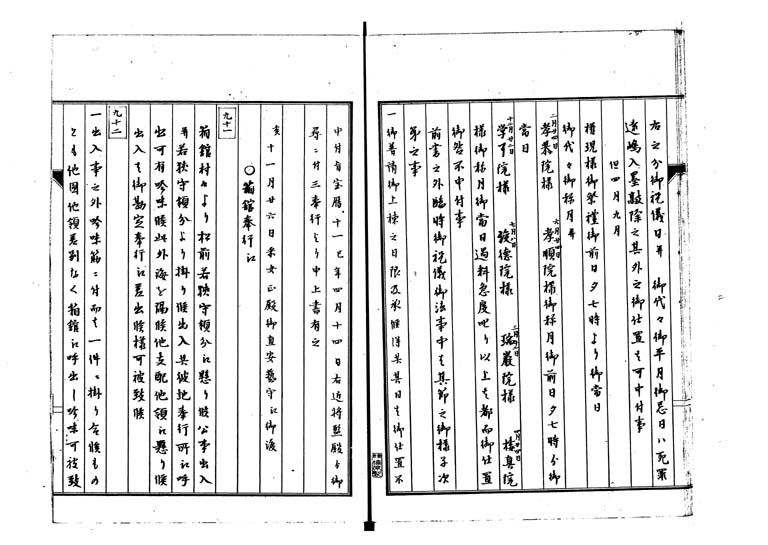 右之分御祝儀日并 御代々御平月御忌日ハ死罪
遠嶋入墨敲除之其外之御仕置者可申付事
但四月九月
権現様御祭禮御前日夕七時より御当日
御代々御祥月并
二月廿四日
孝恭院様
六月廿四日
孝順院様御祥月御前日夕七時分御
当日
十一月廿三日
七月八日
俊徳院様
二月
瑞巌院様
四月廿四日
様真院
様御祥月御当日過料急度叱り以上者都而御仕置
御咎不申付事
前書之外臨時御祝儀御法事中者其節之御様子次
第之事
一御普請御上棟之日限及承候得共其日者御仕置不
申付旨宝暦十一巳年四月十四日右近将監殿より御
尋ニ付三奉行より申上書有之
亥十一月廿六日采女正殿御直安藝守江御渡
九十一
○箱館奉行江
箱館村々より松前若狭守領分江懸り候公事出入
并若狭守領分より掛り候出入共彼地奉行所江呼
出可有吟味候此外海を隔候他支配他領江懸り候
出入者御勘定奉行江差出候様可被致候
九十二
一出入事之外吟味筋ニ付而者一件ニ掛り合候もの
とも他国他領差別なく箱館江呼出し吟味可被致